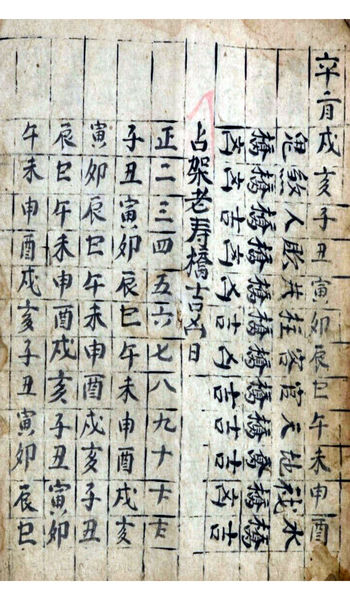 二月戌亥子丑寅卯辰巳午未申酉
鬼人胀井柱官天地水
橋橋橋橋橋橋橋橋橋橋橋橋
凶吉吉凶凶吉凶吉吉吉凶吉
占架老寿橋吉凶日
正二三四五六七八九十十一十二
子丑寅卯辰巳午未申酉戌亥
寅卯辰巳午未申酉戌亥子丑
辰巳午未申酉戌亥子丑寅卯
午未申酉戌亥子丑寅卯辰巳